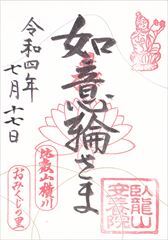 如意輪さま
令和四年
七月十七日
比叡山横川
おみくじの里
臥龍山
安養院